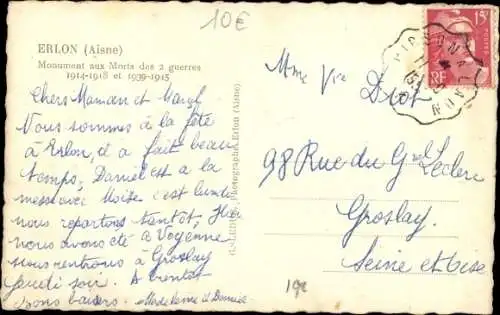 10€
ERLON (Aisne)
Monument aux Morts des 2 guerres
1914-1918 et 1939-1945
Chers Maman et
Nous sommes à la fête
à Erlon, il a fait beau
temps, Daniel est à la
messe avec Moïse c'est lundi
nous repartons tantôt, Hier
nous avons été à Voyenne
nous rentrons à Groslay
jeudi soir. A bientôt
Bons baisers.
Photographe Erlon (Aisne)
15F
POSTES
RF
Mme Vve
Diot
98 Rue du Gnal Leclerc
Groslay
Seine et Oise
19e